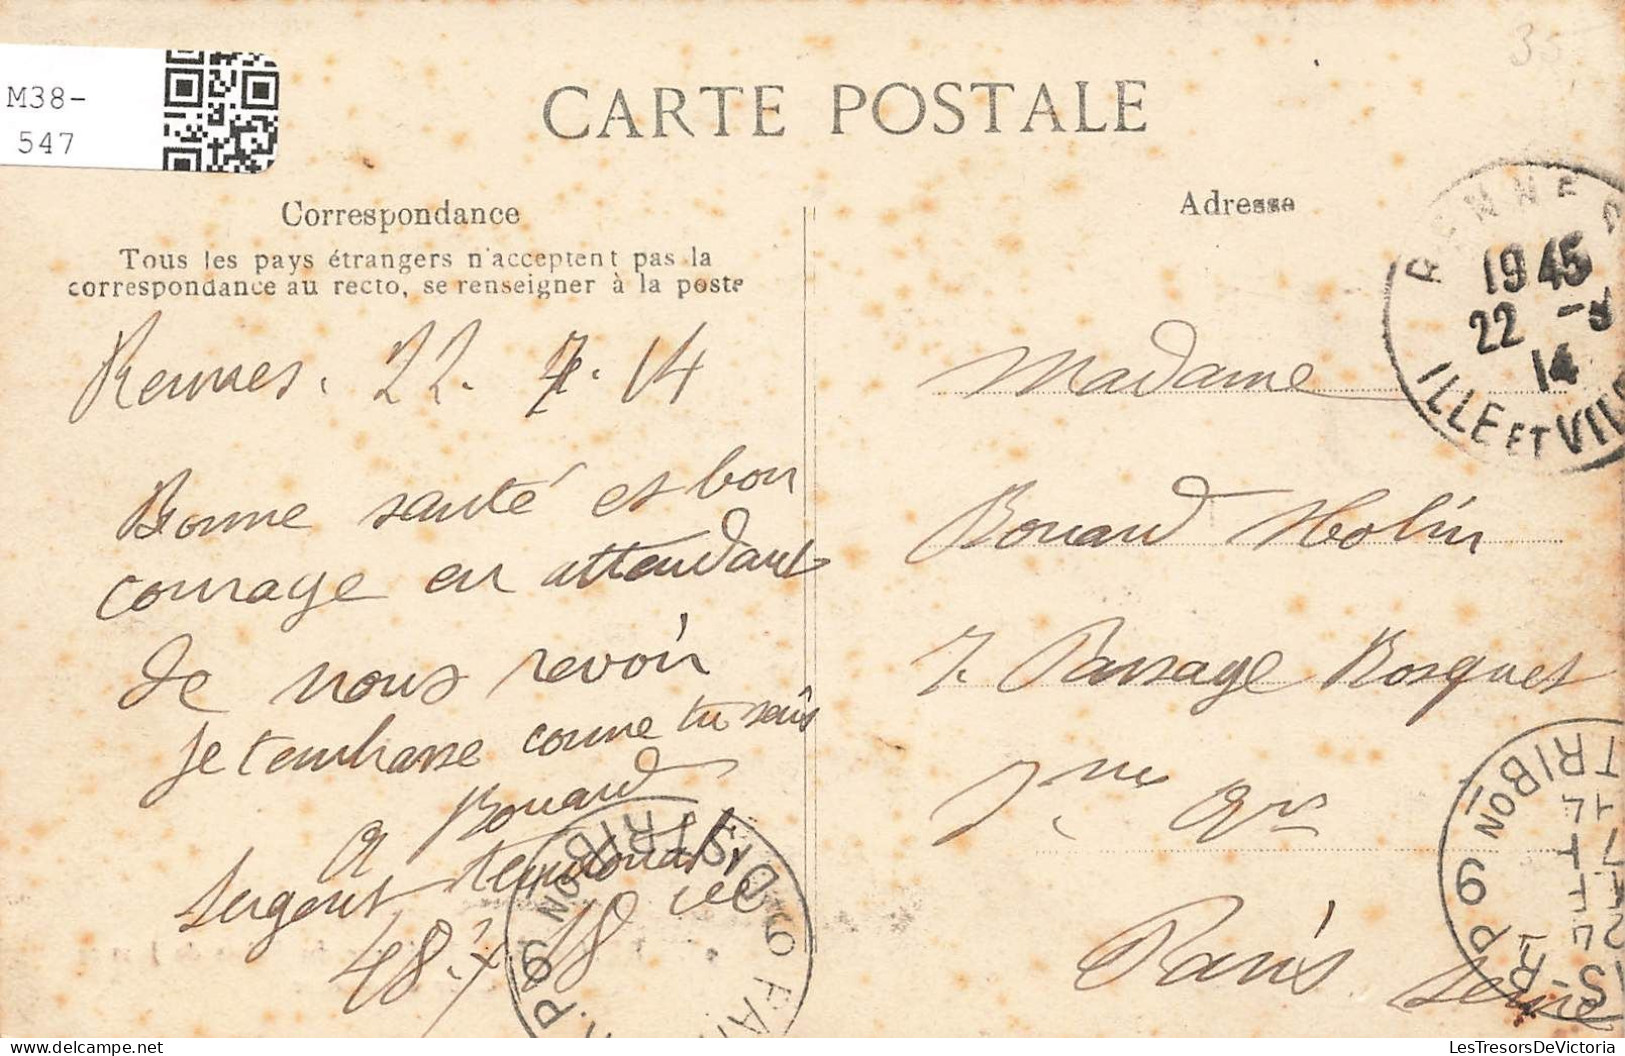 M38-
547
35
CARTE POSTALE
Correspondance
Tous les pays étrangers n'acceptent pas la
correspondance au recto, se renseigner à la poste
Rennes. 22. 7. 14
Bonne santé et bon
courage en attendant
de nous revoir
Je t'embrasse comme tu sais
Bouard
A
Sergent
48. 7 18 cie
Adresse
Madame
Bouard Holin
7. Passage Bosquet
7me Arr
Paris Seine
RENNES
19 45
22
14
ILLE ET VIL
DISTRIBON
9
PA
R.P
TRIBON
9
R.P
LesTresorsDeVictoria.com